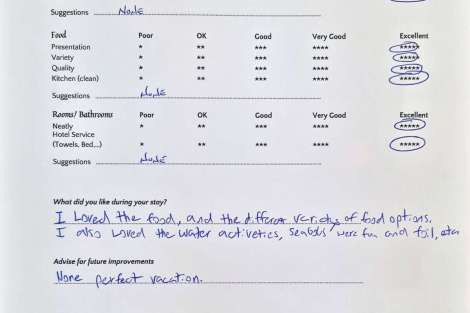 Suggestions None
Food Poor OK Good Very Good Excellent
Presentation * ** *** **** *****
Variety * ** *** **** *****
Quality * ** *** **** *****
Kitchen (clean) * ** *** **** *****
Suggestions None
Rooms/ Bathrooms Poor OK Good Very Good Excellent
Neatly * ** *** **** *****
Hotel Service
(Towels, Bed....) * ** *** **** *****
Suggestions None
What did you like during your stay?
I Loved the food, and the different variety of food options.
I also loved the water activeties, Seabobs were fun and foil, etc
Advise for future improvements
None perfect vacation.